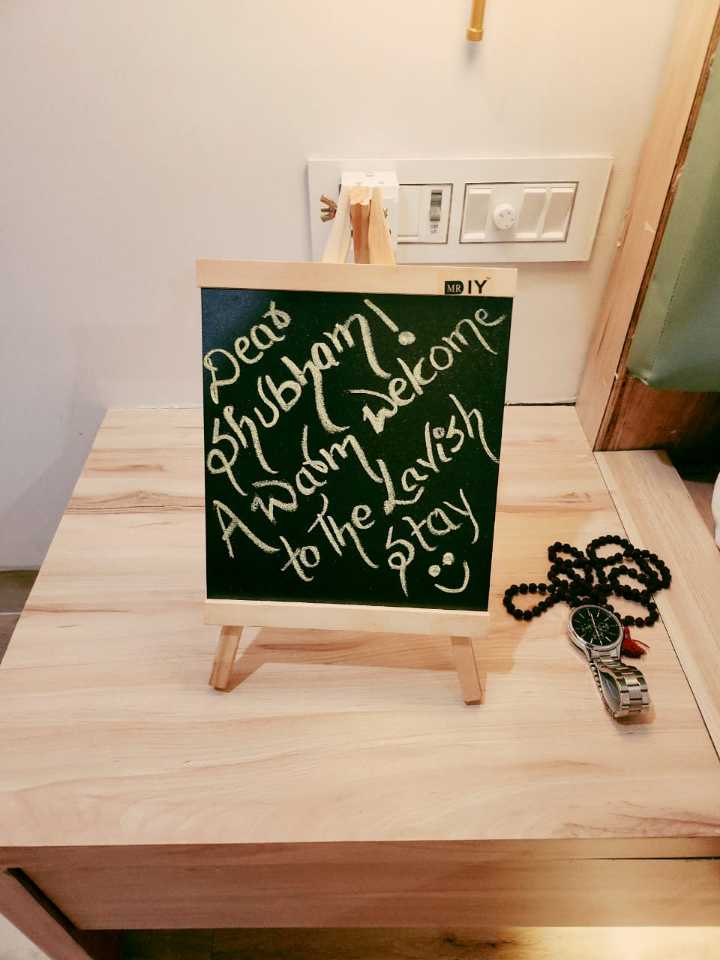 MR DIY
Dear
Shubham!
A warm welcome
to The Lavish
Stay